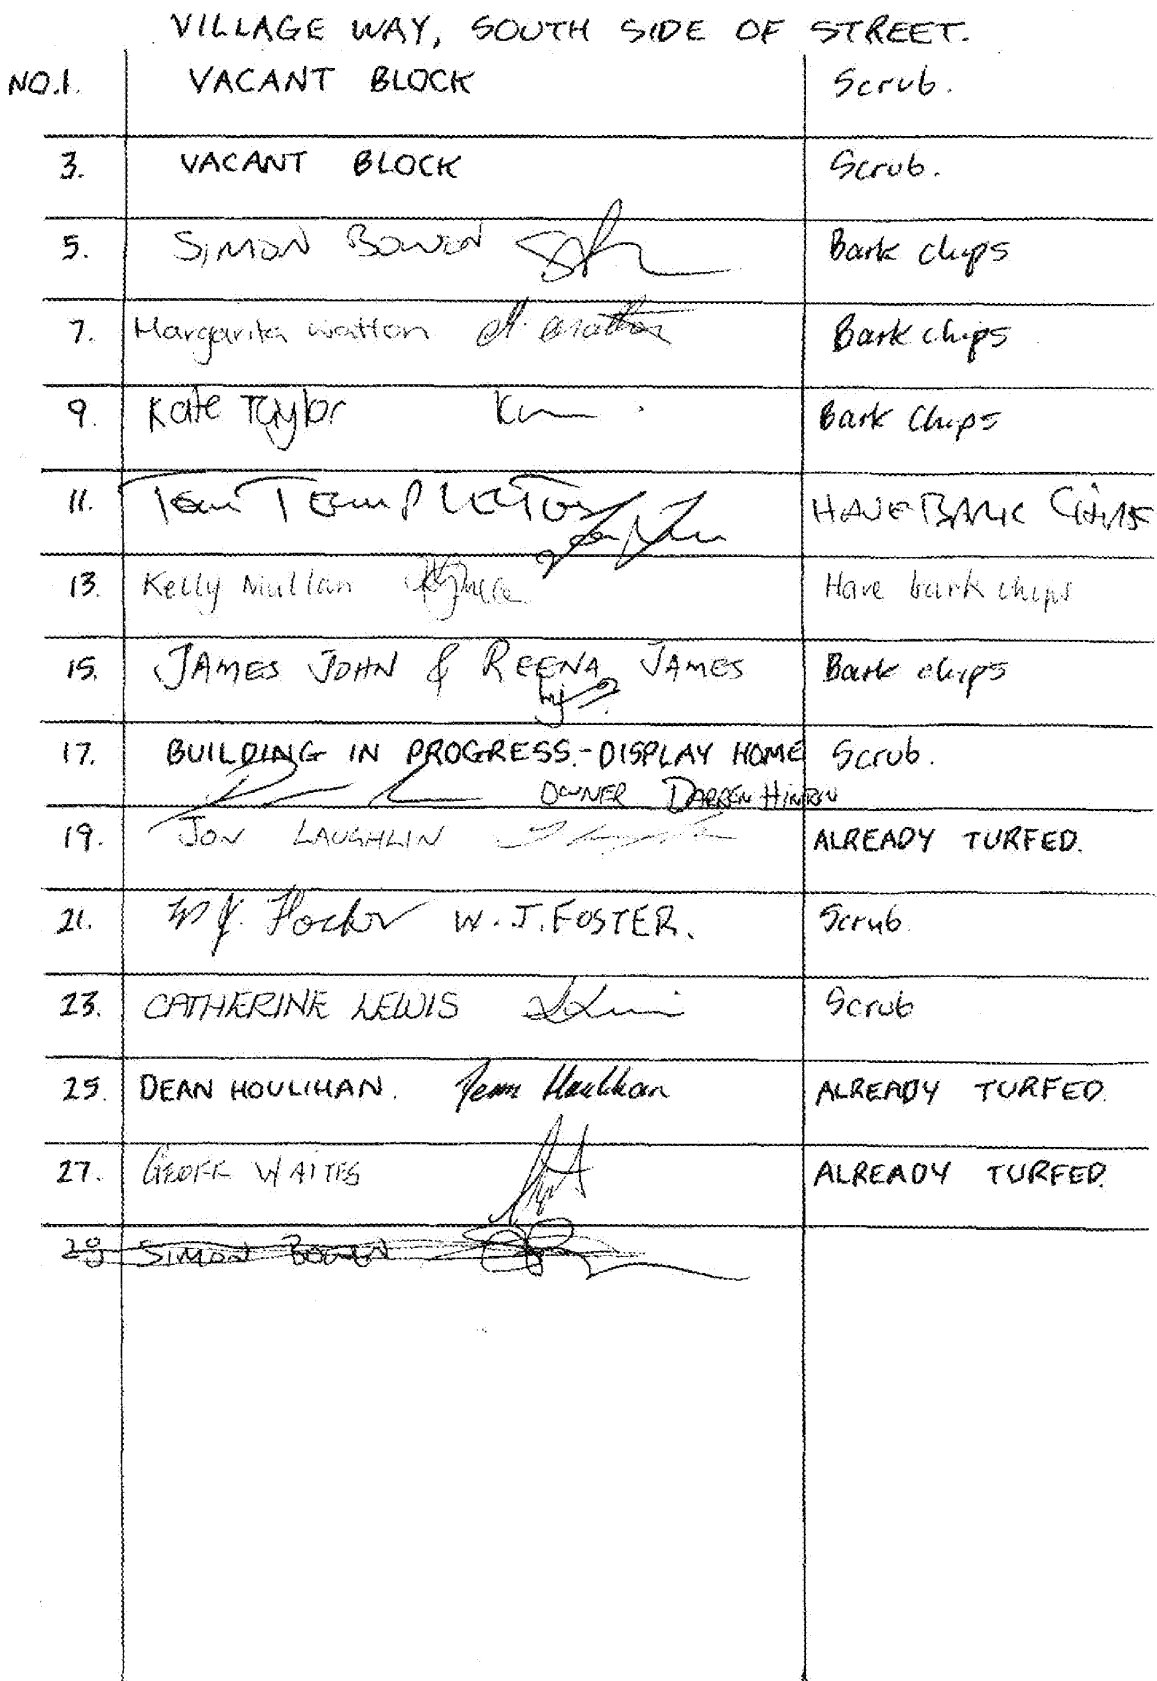 VILLAGE WAY, SOUTH SIDE OF STREET.
NO.1. VACANT BLOCK Scrub.
3. VACANT BLOCK Scrub.
5. SIMON BOWEN Bark chips
7. Margarita Watton M. Watton Bark chips
9. Kate Taylor Bark Chips
11. Tom TEMPLETON HAVE BARK CHIPS
13. Kelly Mullan Have bark chips
15. JAMES JOHN & REENA JAMES Bark chips
17. BUILDING IN PROGRESS.-DISPLAY HOME Scrub.
OWNER DARREN
19. JON LAUGHLIN ALREADY TURFED.
21. W. J. FOSTER. Scrub.
23. CATHERINE LEWIS Scrub
25. DEAN HOULIHAN. Dean Houlihan ALREADY TURFED.
27. GEOFF WAITES ALREADY TURFED.
29 SIMON BOWEN